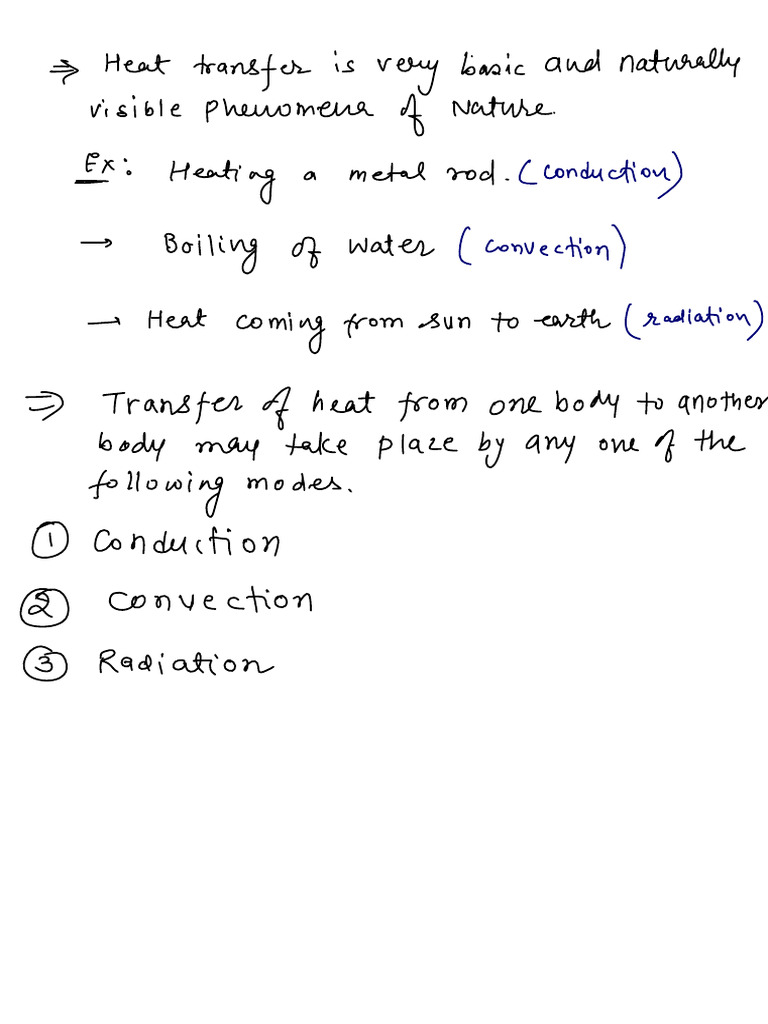 ⇒ Heat transfer is very basic and naturally
visible phenomena of Nature.
Ex: Heating a metal rod. (conduction)
→ Boiling of water (convection)
→ Heat coming from sun to earth (radiation)
⇒ Transfer of heat from one body to another
body may take place by any one of the
following modes.
① Conduction
② Convection
③ Radiation